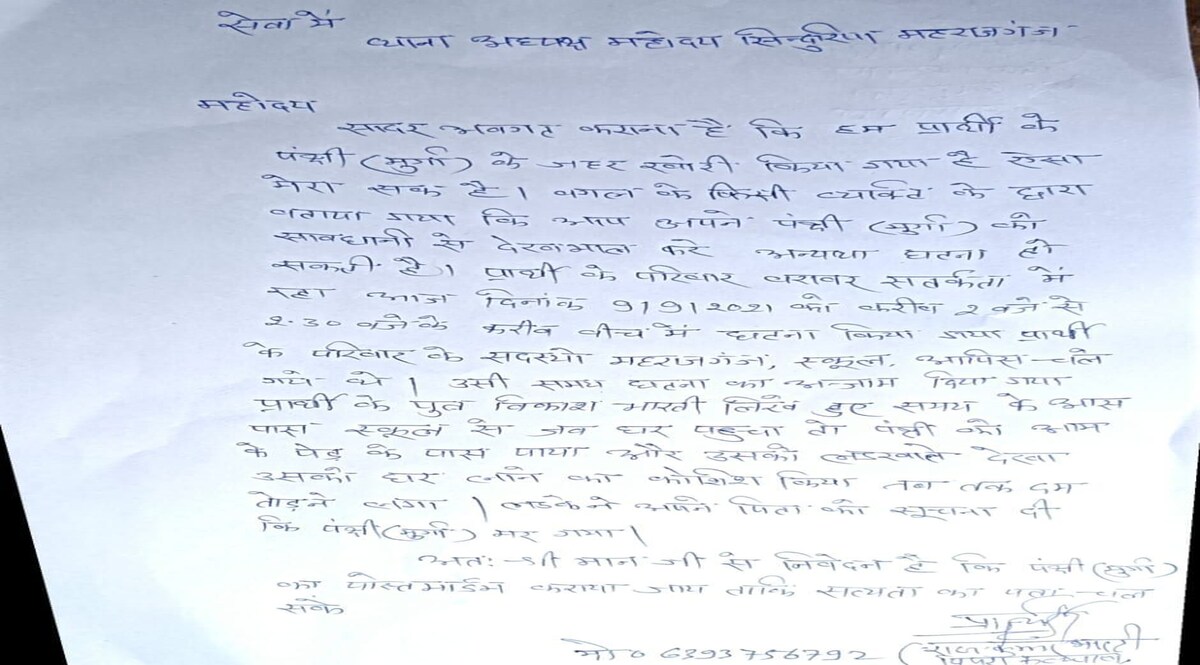 सेवा में
थाना अध्यक्ष महोदय सिन्दुरिया महराजगंज
महोदय
सादर अवगत कराना है कि हम प्रार्थी के
पंक्षी (मुर्गा) के जहर खोरी किया गया है ऐसा
मेरा सक है। बगल के किसी व्यक्ति के द्वारा
बताया गया कि आप अपने पंक्षी (मुर्गा) को
सावधानी से देखभाल करे अन्यथा घटना हो
सकती है। प्रार्थी के परिवार बराबर सतर्कता में
रहा आज दिनांक 9/9/2021 को करीब 2 बजे से
2.30 बजे के करीब बीच में घटना किया गया प्रार्थी
के परिवार के सदस्यो महराजगंज, स्कूल, आपिस चले
गये थे। उसी समय घटना का अन्जाम दिया गया
प्रार्थी के पुत्र विकाश भारती लिखे हुए समय के आस
पास स्कूल से जब घर पहुचा तो पंक्षी को आम
के पेड़ के पास पाया और उसको लडखाते देखा
उसको घर लाने का कोशिश किया तब तक दम
तोड़ने लगा। लडके ने अपने पिता को सूचना दी
कि पंक्षी (मुर्गा) मर गया।
अतः श्री मान जी से निवेदन है कि पंक्षी (मुर्गा)
का पोस्तमार्डम कराया जाय ताकि सत्यता का पता चल
सके
प्रार्थी
मो० 6393756792 (राज कुमार भारती
पिपरा कल्याण